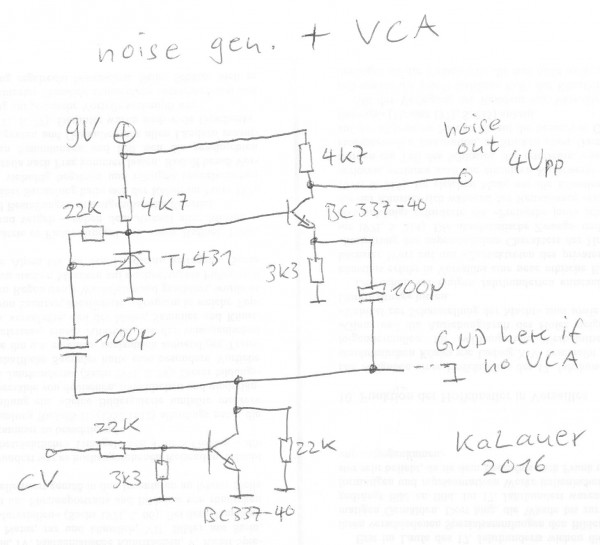 noise gen. + VCA
9V
noise
out
4Upp
4K7
22K
4K7
BC337-40
TL431
3K3
100µ
100µ
GND here if
no VCA
22K
22K
CV
3K3
BC337-40
KaLauer
2016